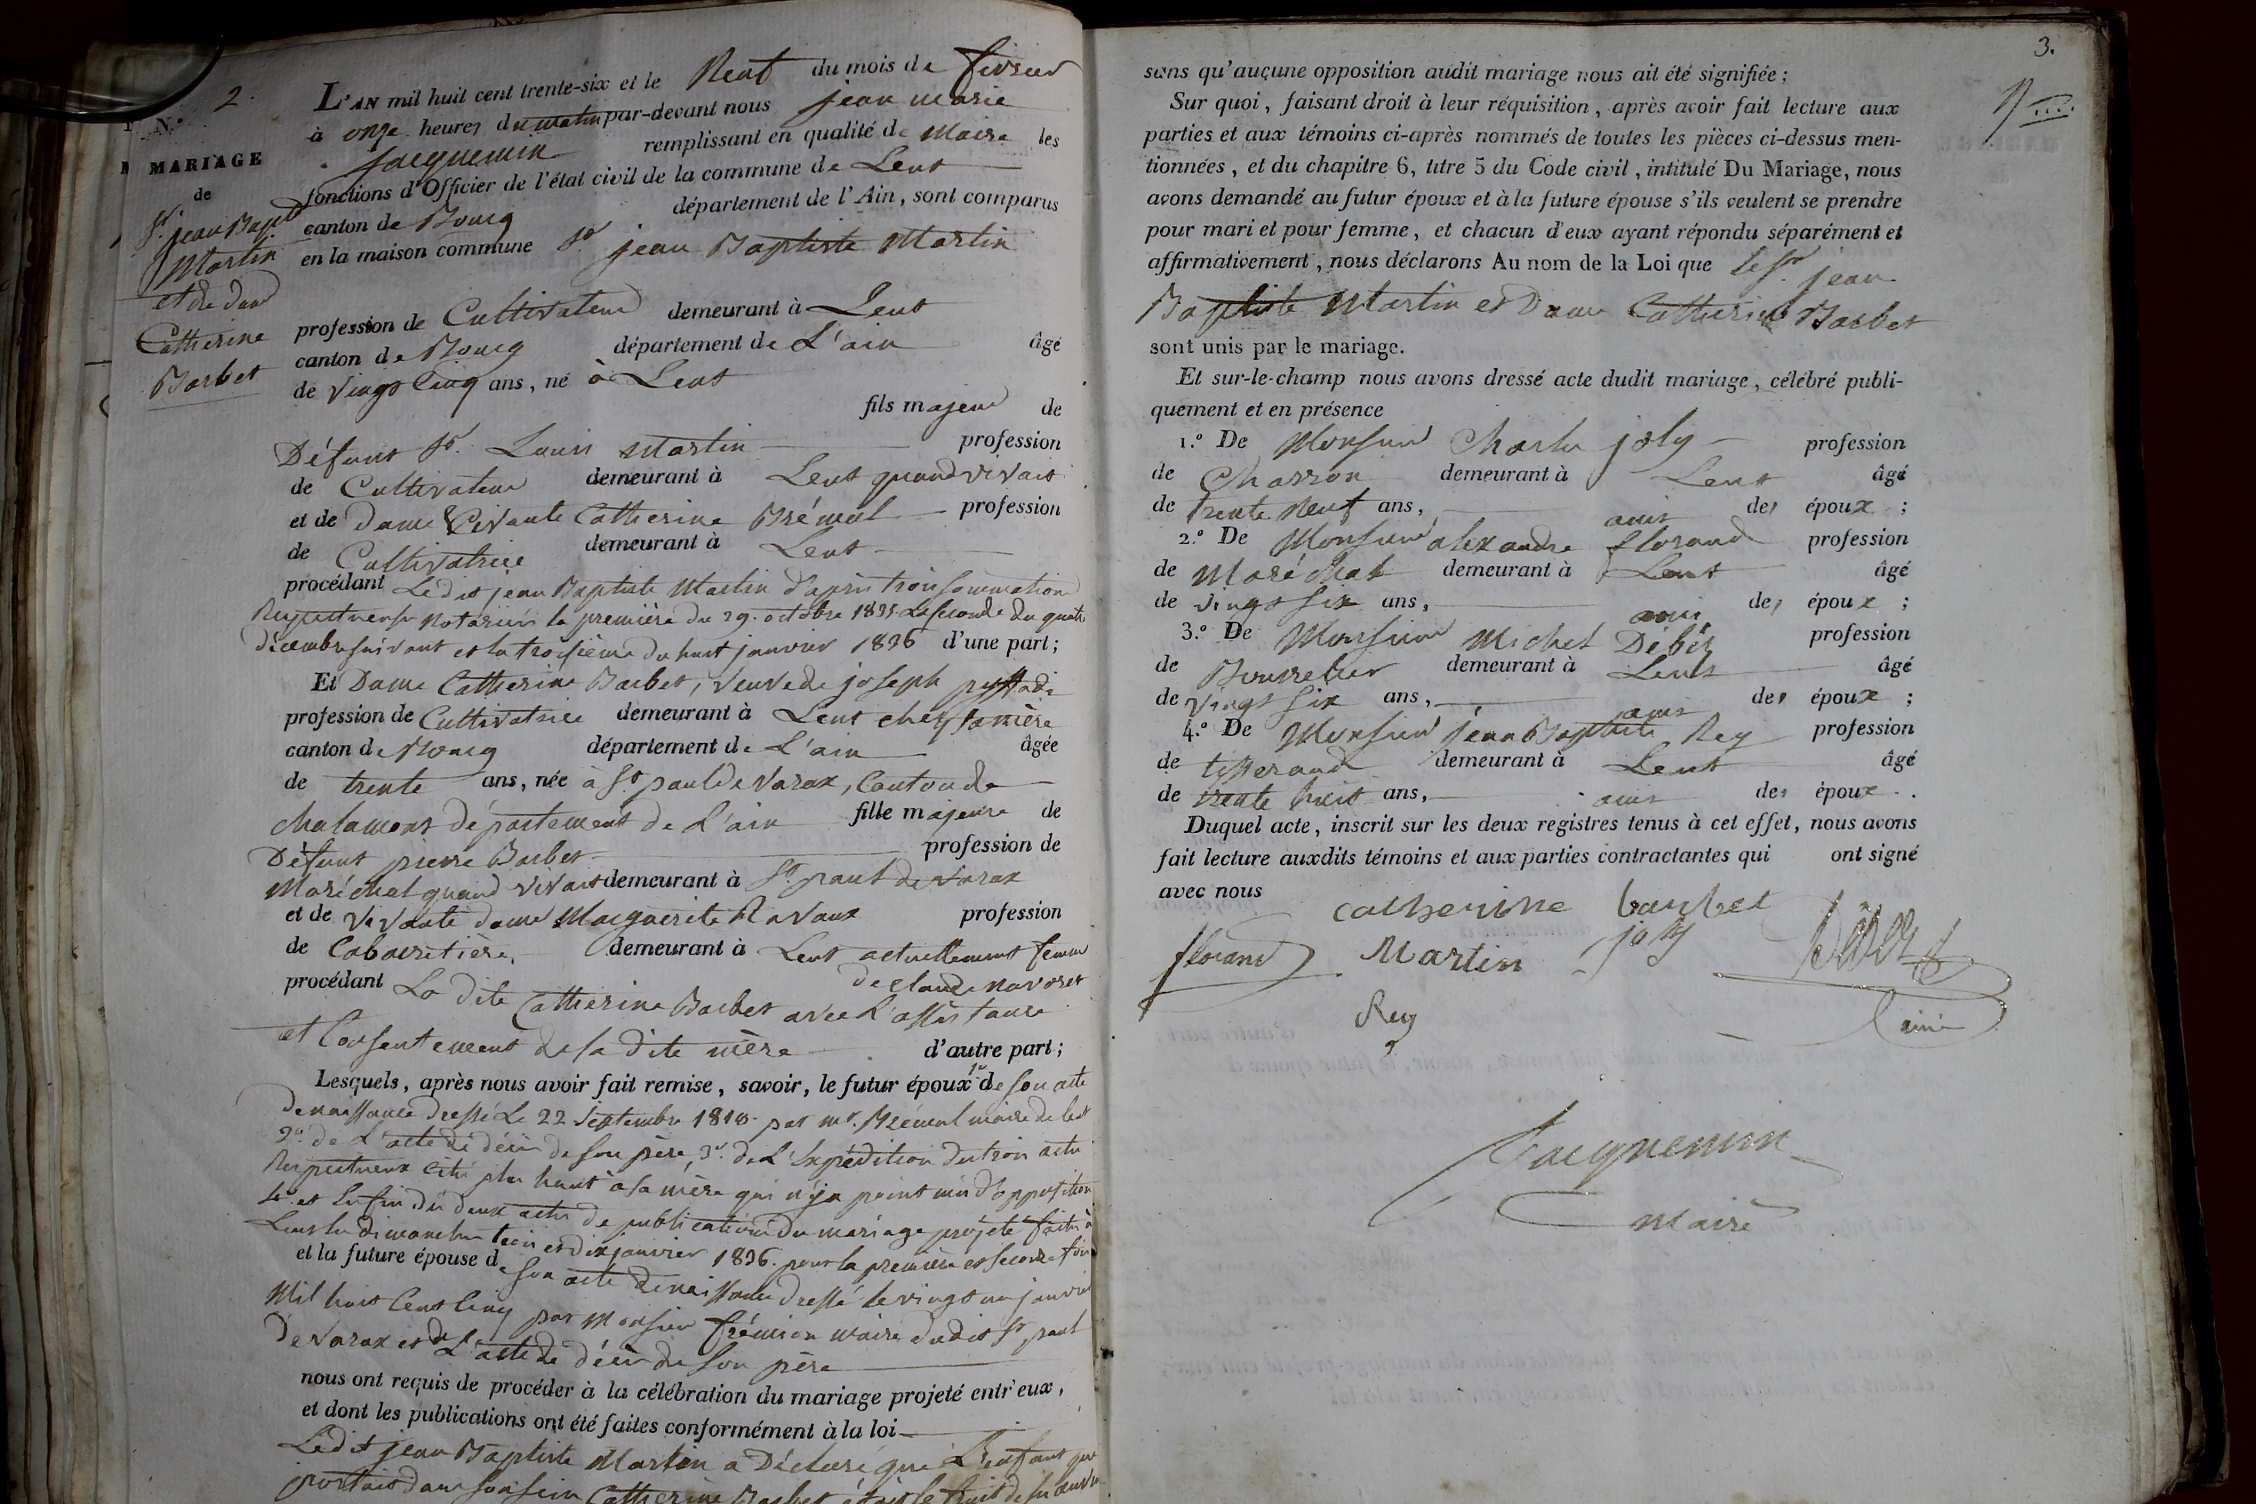 N.° 2.
MARIAGE
de
S.r jean Bap.te
Martin
et de dame
Catherine
Barbet
L'AN mil huit cent trente-six et le Neuf du mois de fevrier
à onze heures du matin par-devant nous jean marie
Jacquemin remplissant en qualité de Maire les
fonctions d'Officier de l'état civil de la commune de Lent
canton de Bourg département de l'Ain, sont comparus
en la maison commune S.r jean Baptiste Martin
profession de Cultivateur demeurant à Lent
canton de Bourg département de L'ain âgé
de vingt Cinq ans, né à Lent
fils majeur de
Défunt S.r Louis Martin profession
de Cultivateur demeurant à Lent quand vivait
et de dame vivante Catherine Brémal profession
de Cultivatrice demeurant à Lent
procédant Ledit jean Baptiste Martin d'après trois sommations
Respectueuses Notariées la première du 29. octobre 1835 La seconde du quatre
décembre suivant et la troisième du huit janvier 1836 d'une part;
Et Dame Catherine Barbet, veuve de joseph
profession de Cultivatrice demeurant à Lent chez sa mère
canton de Bourg département de L'ain âgée
de trente ans, née à S.t paul de Varax, Canton de
chalamont département de L'ain fille majeure de
Défunt pierre Barbet profession de
Maréchal quand vivait demeurant à S.t paul de Varax
et de vivante dame Marguerite Ravaux profession
de Cabaretière, demeurant à Lent actuellement femme
de claude
procédant La dite Catherine Barbet avec L'assistance
et Consentement de sa dite mère d'autre part;
Lesquels, après nous avoir fait remise, savoir, le futur époux 1.° de son acte
de naissance dressé Le 22 Septembre 1810 par m.r Brémal maire de lent
2.° de L'acte de décès de son père, 3.° de L'Expédition des trois actes
Respectueux cités plus haut à sa mère qui n'ja point mis d'opposition
4.° et Enfin des deux actes de publication du mariage projeté faites à
Lent les dimanches trois et dix janvier 1836. pour la première et seconde fois
et la future épouse de son acte de naissance dressé le vingt un janvier
Mil huit Cent Cinq par Monsieur frémion maire dudit S.t paul
de Varax et de L'acte de décès de son père
nous ont requis de procéder à la célébration du mariage projeté entr'eux,
et dont les publications ont été faites conformément à la loi
Ledit jean Baptiste Martin a Déclaré que L'enfant que
portait dans son sein Catherine Barbet était le fruit de
3.
sans qu'aucune opposition audit mariage nous ait été signifiée;
Sur quoi, faisant droit à leur réquisition, après avoir fait lecture aux
parties et aux témoins ci-après nommés de toutes les pièces ci-dessus men-
tionnées, et du chapitre 6, titre 5 du Code civil, intitulé Du Mariage, nous
avons demandé au futur époux et à la future épouse s'ils veulent se prendre
pour mari et pour femme, et chacun d'eux ayant répondu séparément et
affirmativement, nous déclarons Au nom de la Loi que le S.r jean
Baptiste Martin et Dame Catherine Barbet
sont unis par le mariage.
Et sur-le-champ nous avons dressé acte dudit mariage, célébré publi-
quement et en présence
1.° De Monsieur Charles joly profession
de Charron demeurant à Lent âgé
de trente Neuf ans, amis des époux;
2.° De Monsieur alexandre florand profession
de Maréchal demeurant à Lent âgé
de vingt six ans, ami des époux;
3.° De Monsieur Michel Débet profession
de Bourrelier demeurant à Lent âgé
de vingt six ans, amis des époux;
4.° De Monsieur jean Baptiste Rey profession
de tisserand demeurant à Lent âgé
de trente huit ans, amis des époux.
Duquel acte, inscrit sur les deux registres tenus à cet effet, nous avons
fait lecture auxdits témoins et aux parties contractantes qui ont signé
avec nous
catherine barbet
florand Martin joly
Rey ainé
Jacquemin
maire